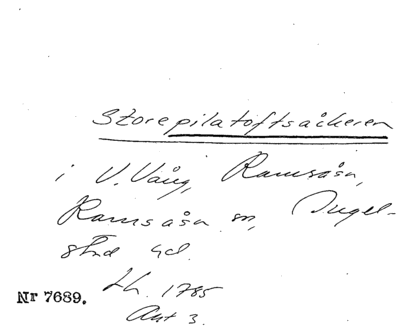 Storepilatoftsåckeren
i V. Vång, Ramsåsa,
Ramsåsa sn, Ingel-
stad hd.
Lh. 1785
Nr 7689.
Akt 3.